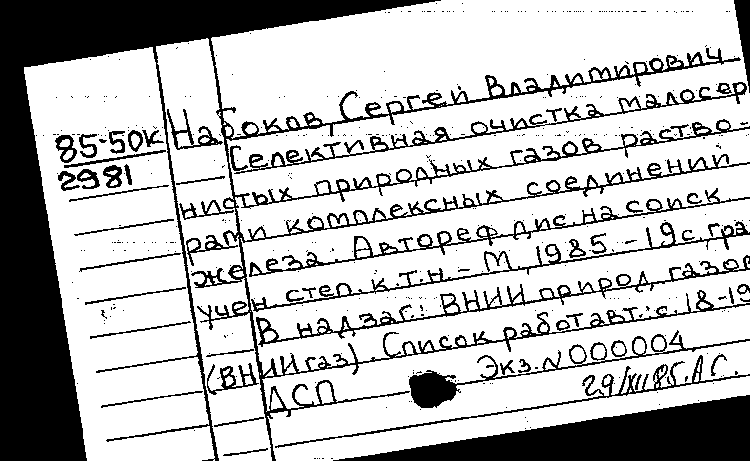 85-50к
2981
Набоков, Сергей Владимирович
Селективная очистка малосер
нистых природных газов раство-
рами комплексных соединений
железа: Автореф дис. на соиск
учен степ. к.т.н. - М, 1985. - 19 с, гра
В надзаг: ВНИИ природ газов
(ВНИИгаз). Список работ авт.: с. 18-19
Экз. N 000004
ДСП
29/XII 85г. АС.